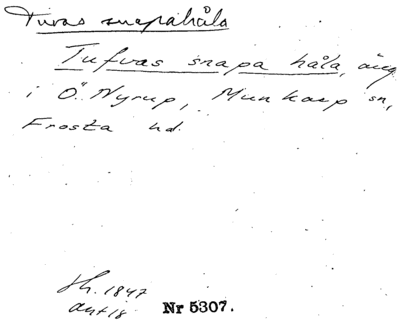 Tuvas snapahåla
Tufvas snapa håla, äng
i Ö. Nyrup, Munkarp sn,
Frosta hd.
Sk. 1847
avt 18
Nr 5307.